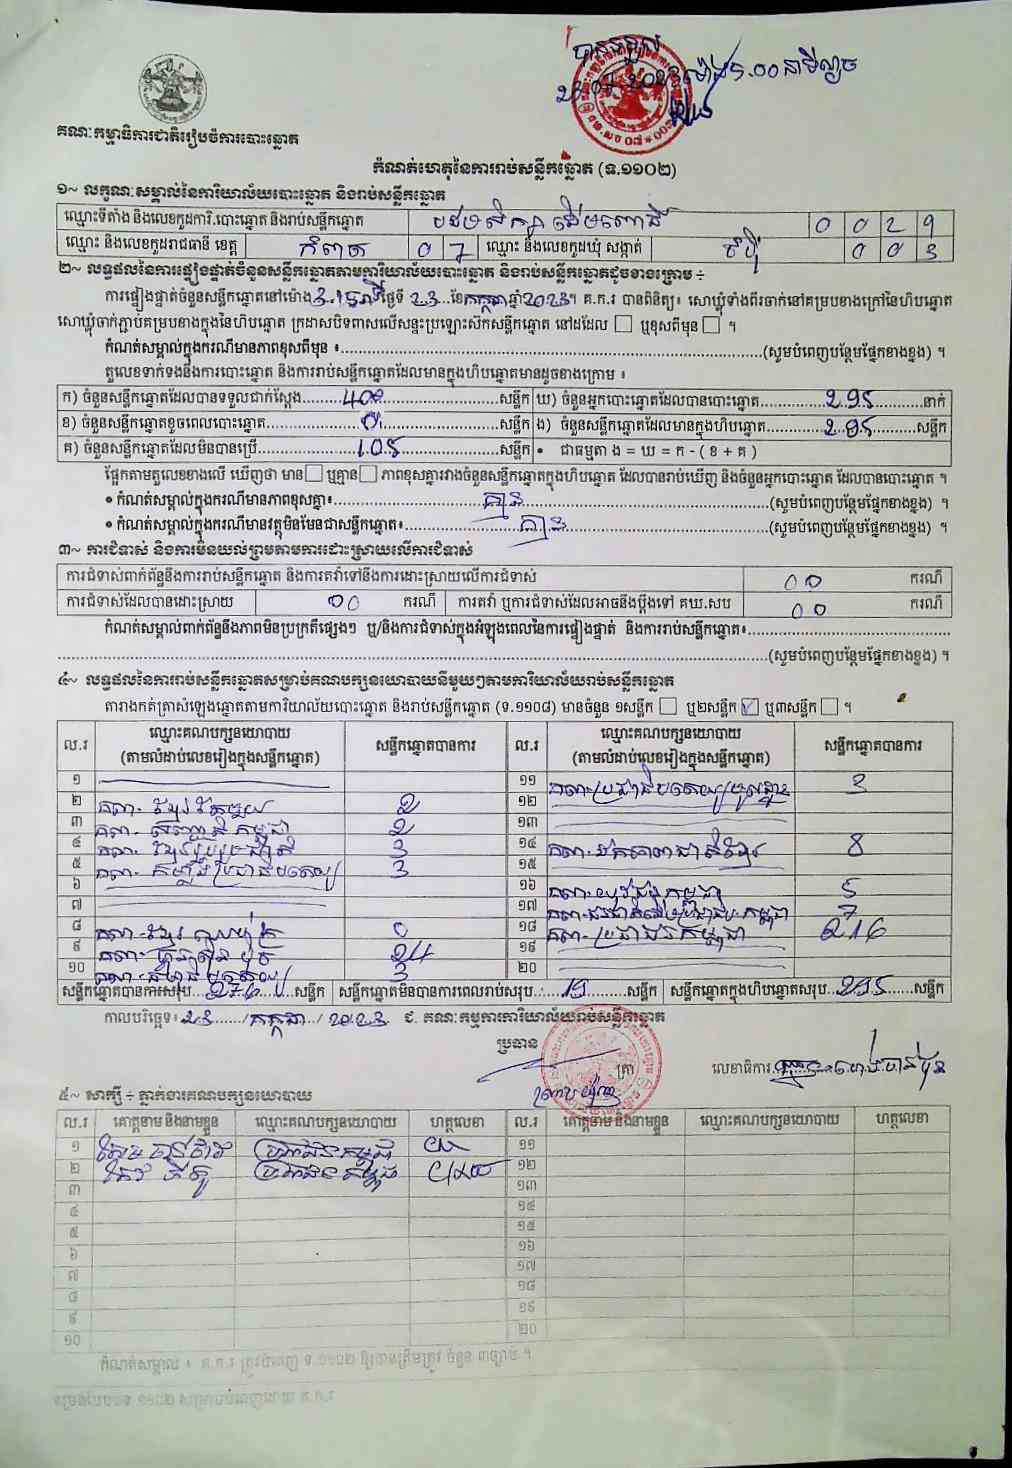 បានទទួល
23.07.2023 ម៉ោង 5.00 នាទីល្ងាច
គណៈកម្មាធិការជាតិរៀបចំការបោះឆ្នោត
កំណត់ហេតុនៃការរាប់សន្លឹកឆ្នោត (ទ.១១០២)
១~ លក្ខណៈសម្គាល់នៃការិយាល័យបោះឆ្នោត និងរាប់សន្លឹកឆ្នោត
ឈ្មោះទីតាំង និងលេខកូដការិ.បោះឆ្នោត និងរាប់សន្លឹកឆ្នោត បឋមសិក្សា 0 0 2 9
ឈ្មោះ និងលេខកូដរាជធានី ខេត្ត កំពត 0 7 ឈ្មោះ និងលេខកូដឃុំ សង្កាត់ 0 0 3
២~ លទ្ធផលនៃការផ្ទៀងផ្ទាត់ចំនួនសន្លឹកឆ្នោតតាមការិយាល័យបោះឆ្នោត និងរាប់សន្លឹកឆ្នោតដូចខាងក្រោម ÷
ការផ្ទៀងផ្ទាត់ចំនួនសន្លឹកឆ្នោតនៅម៉ោង ថ្ងៃទី 23 ខែ កក្កដា ឆ្នាំ 2023។ គ.ក.រ បានពិនិត្យ៖ សោឃ្លុំទាំងពីរចាក់នៅគម្របខាងក្រៅនៃហិបឆ្នោត
សោឃ្លុំចាក់ភ្ជាប់គម្របខាងក្នុងនៃហិបឆ្នោត ក្រដាសបិទពាសលើសន្ទះប្រឡោះស៊កសន្លឹកឆ្នោត នៅដដែល ☐ ឬខុសពីមុន ☐ ។
កំណត់សម្គាល់ក្នុងករណីមានភាពខុសពីមុន ៖ (សូមបំពេញបន្ថែមផ្នែកខាងខ្នង) ។
តួលេខទាក់ទងនឹងការបោះឆ្នោត និងការរាប់សន្លឹកឆ្នោតដែលមានក្នុងហិបឆ្នោតមានដូចខាងក្រោម ៖
ក) ចំនួនសន្លឹកឆ្នោតដែលបានទទួលជាក់ស្តែង 400 សន្លឹក ឃ) ចំនួនអ្នកបោះឆ្នោតដែលបានបោះឆ្នោត 295 នាក់
ខ) ចំនួនសន្លឹកឆ្នោតខូចពេលបោះឆ្នោត 0 សន្លឹក ង) ចំនួនសន្លឹកឆ្នោតដែលមានក្នុងហិបឆ្នោត 295 សន្លឹក
គ) ចំនួនសន្លឹកឆ្នោតដែលមិនបានប្រើ 105 សន្លឹក • ជាធម្មតា ង = ឃ = ក - ( ខ + គ )
ផ្អែកតាមតួលេខខាងលើ ឃើញថា មាន ☐ ឬគ្មាន ☐ ភាពខុសគ្នារវាងចំនួនសន្លឹកឆ្នោតក្នុងហិបឆ្នោត ដែលបានរាប់ឃើញ និងចំនួនអ្នកបោះឆ្នោត ដែលបានបោះឆ្នោត ។
• កំណត់សម្គាល់ក្នុងករណីមានភាពខុសគ្នា៖ គ្មាន (សូមបំពេញបន្ថែមផ្នែកខាងខ្នង) ។
• កំណត់សម្គាល់ក្នុងករណីមានវត្ថុមិនមែនជាសន្លឹកឆ្នោត៖ គ្មាន (សូមបំពេញបន្ថែមផ្នែកខាងខ្នង) ។
៣~ ការជំទាស់ និងការមិនយល់ព្រមតាមការដោះស្រាយលើការជំទាស់
ការជំទាស់ពាក់ព័ន្ធនឹងការរាប់សន្លឹកឆ្នោត និងការតវ៉ាទៅនឹងការដោះស្រាយលើការជំទាស់ 00 ករណី
ការជំទាស់ដែលបានដោះស្រាយ 00 ករណី ការតវ៉ា ឬការជំទាស់ដែលអាចនឹងប្តឹងទៅ គឃ.សប 00 ករណី
កំណត់សម្គាល់ពាក់ព័ន្ធនឹងភាពមិនប្រក្រតីផ្សេងៗ ឬ/និងការជំទាស់ក្នុងអំឡុងពេលនៃការផ្ទៀងផ្ទាត់ និងការរាប់សន្លឹកឆ្នោត៖
(សូមបំពេញបន្ថែមផ្នែកខាងខ្នង) ។
៤~ លទ្ធផលនៃការរាប់សន្លឹកឆ្នោតសម្រាប់គណបក្សនយោបាយនីមួយៗតាមការិយាល័យរាប់សន្លឹកឆ្នោត
តារាងកត់ត្រាសំឡេងឆ្នោតតាមការិយាល័យបោះឆ្នោត និងរាប់សន្លឹកឆ្នោត (ទ.១១០៨) មានចំនួន ១សន្លឹក ☐ ឬ២សន្លឹក ☑ ឬ៣សន្លឹក ☐ ។
ល.រ ឈ្មោះគណបក្សនយោបាយ (តាមលំដាប់លេខរៀងក្នុងសន្លឹកឆ្នោត) សន្លឹកឆ្នោតបានការ ល.រ ឈ្មោះគណបក្សនយោបាយ (តាមលំដាប់លេខរៀងក្នុងសន្លឹកឆ្នោត) សន្លឹកឆ្នោតបានការ
១ ១១ គណ-ប្រជាធិបតេយ្យមូលដ្ឋាន 3
២ គណ- ខ្មែរតែមួយ 2 ១២
៣ គណ- សញ្ជាតិកម្ពុជា 2 ១៣
៤ គណ- ខ្មែររួបរួមជាតិ 3 ១៤ គណ-ឯកភាពជាតិខ្មែរ 8
៥ គណ- កម្លាំងប្រជាធិបតេយ្យ 3 ១៥
៦ ១៦ គណ-យុវជនកម្ពុជា 5
៧ ១៧ 7
៨ គណ-ខ្មែរ 0 ១៨ គណ-ប្រជាជនកម្ពុជា 216
៩ គណ-ហ្វ៊ុនស៊ិនប៉ិច 24 ១៩
១០ 3 ២០
សន្លឹកឆ្នោតបានការសរុប 276 សន្លឹក សន្លឹកឆ្នោតមិនបានការពេលរាប់សរុប 19 សន្លឹក សន្លឹកឆ្នោតក្នុងហិបឆ្នោតសរុប 295 សន្លឹក
កាលបរិច្ឆេទ៖ 23 / កក្កដា / 2023 ៩. គណៈកម្មការការិយាល័យរាប់សន្លឹកឆ្នោត
ប្រធាន
ត្រា លេខាធិការ
៥~ សាក្សី ÷ ភ្នាក់ងារគណបក្សនយោបាយ
ល.រ គោត្តនាម និងនាមខ្លួន ឈ្មោះគណបក្សនយោបាយ ហត្ថលេខា ល.រ គោត្តនាម និងនាមខ្លួន ឈ្មោះគណបក្សនយោបាយ ហត្ថលេខា
១ ប្រជាជនកម្ពុជា ១១
២ ប្រជាជនកម្ពុជា ១២
៣ ១៣
៤ ១៤
៥ ១៥
៦ ១៦
៧ ១៧
៨ ១៨
៩ ១៩
១០ ២០
កំណត់សម្គាល់ ៖ គ.ក.រ ត្រូវបំពេញ ទ.១១០២ ឱ្យបានត្រឹមត្រូវ ចំនួន ៣ច្បាប់ ។